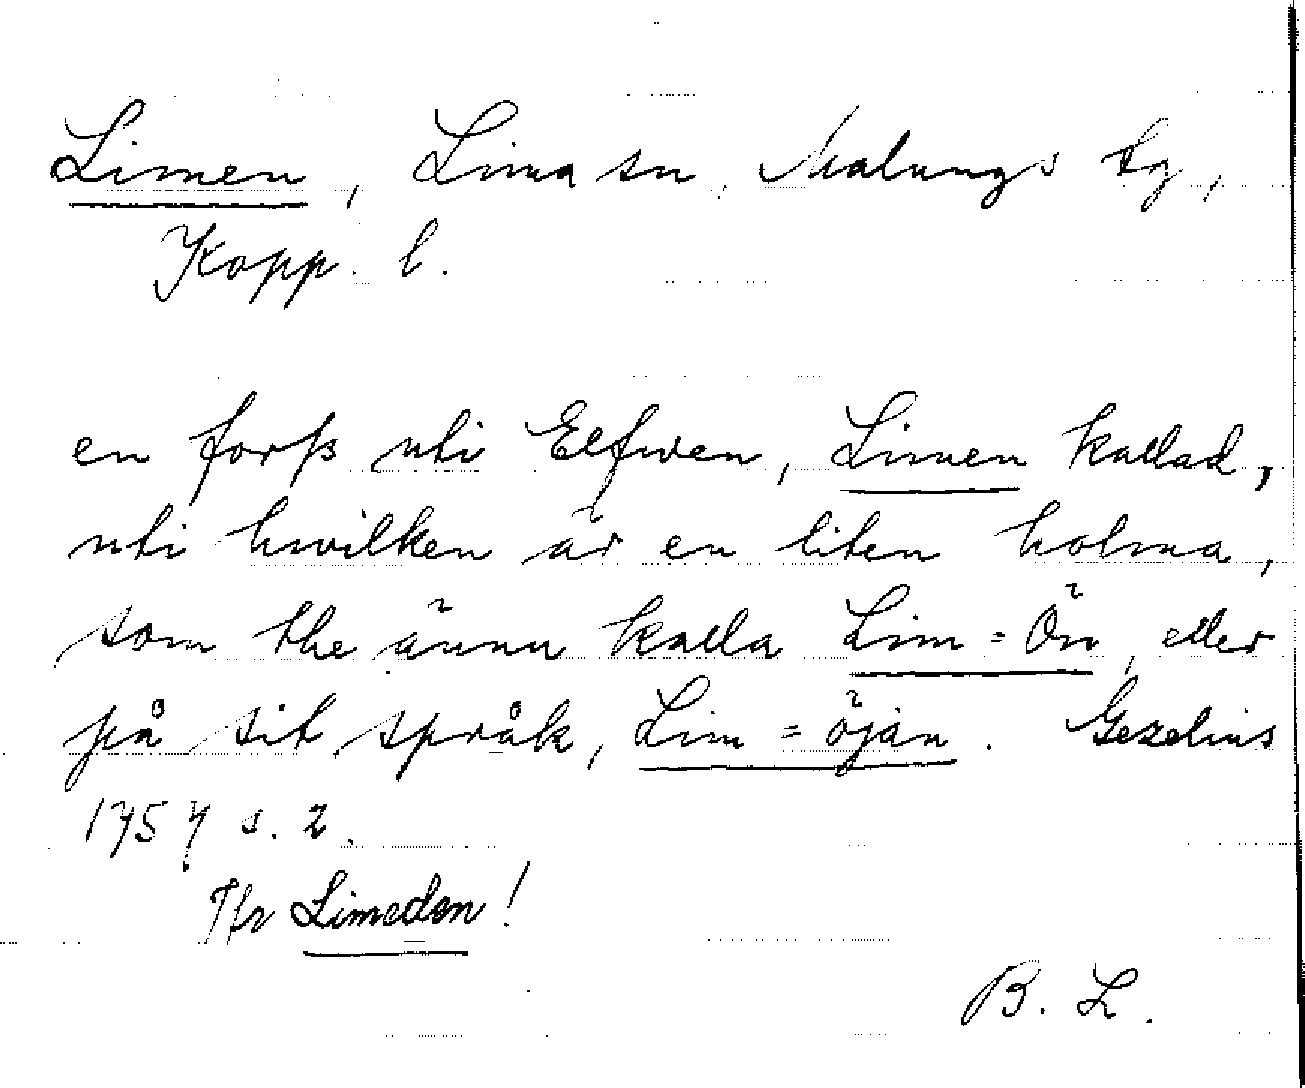 Limen, Lima sn, Malungs tg,
Kopp. l.
en forß uti Elfwen, Limen kallad,
uti hwilken är en liten holma,
som the ännu kalla Lim=Ön, eller
på sit språk, Lim=öjan. Gezelius
1757 s. 2.
Jfr Limedon!
B. L.